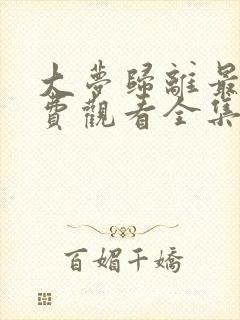 大夢歸離最
費觀看全集
百媚千嬌